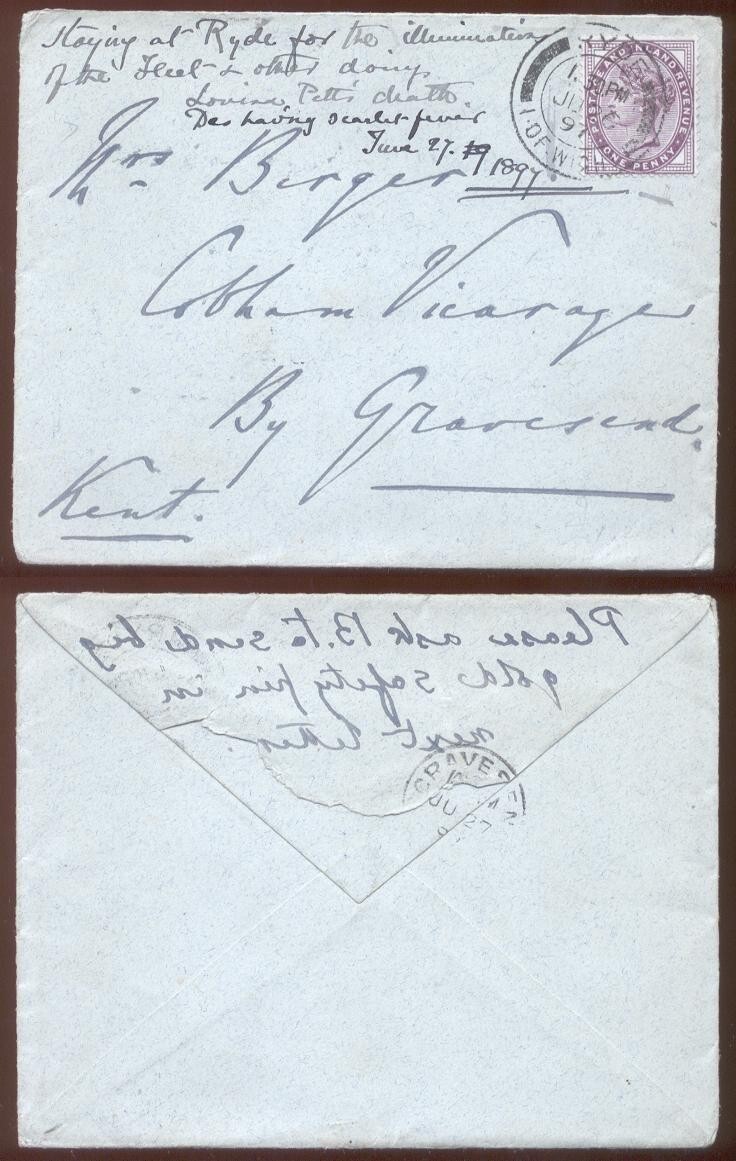 Staying at Ryde for the illuminations
of the Fleet & other doings
Louisa Pett's death.
Des having scarlet fever
June 27. 1897
POSTAGE AND INLAND REVENUE
ONE PENNY
I. OF WIGHT
97
Mrs Berger
Cobham Vicarage
By Gravesend.
Kent.
Please ask B. to send big
gold safety pin in
next letter.
GRAVESEN
JU 27